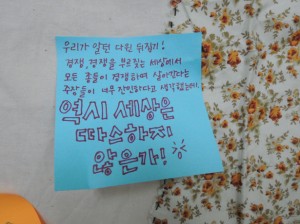 우리가 알던 다윈 뒤집기!
경쟁, 경쟁을 부르짖는 세상에서
모든 종들이 경쟁하며 살아간다는
주장들이 너무 잔인하다고 생각했는데,
역시 세상은
따스하지
않은가!